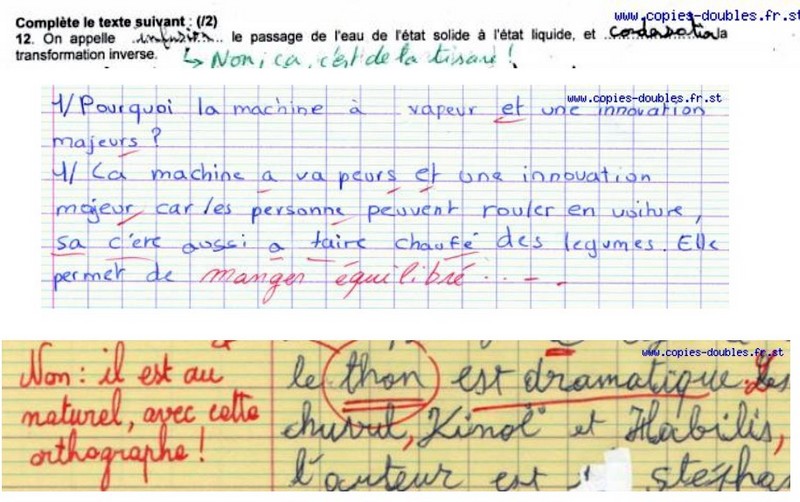 Complète le texte suivant : (/2)
www.copies-doubles.fr.st
12. On appelle ...infusion... le passage de l'eau de l'état solide à l'état liquide, et la
transformation inverse. ↳ Non ! ça, c'est de la tisane !
www.copies-doubles.fr.st
1/ Pourquoi la machine à vapeur et une innovation
majeurs ?
1/ La machine a va peurs et une innovation
majeur car les personne peuvent rouler en voiture,
sa c'ere aussi a faire chaufé des legumes. Elle
permet de manger équilibré . . . . .
www.copies-doubles.fr.st
Non : il est au
naturel, avec cette
orthographe !
le thon est dramatique. Les
Kinol et Habilis,
l'auteur est